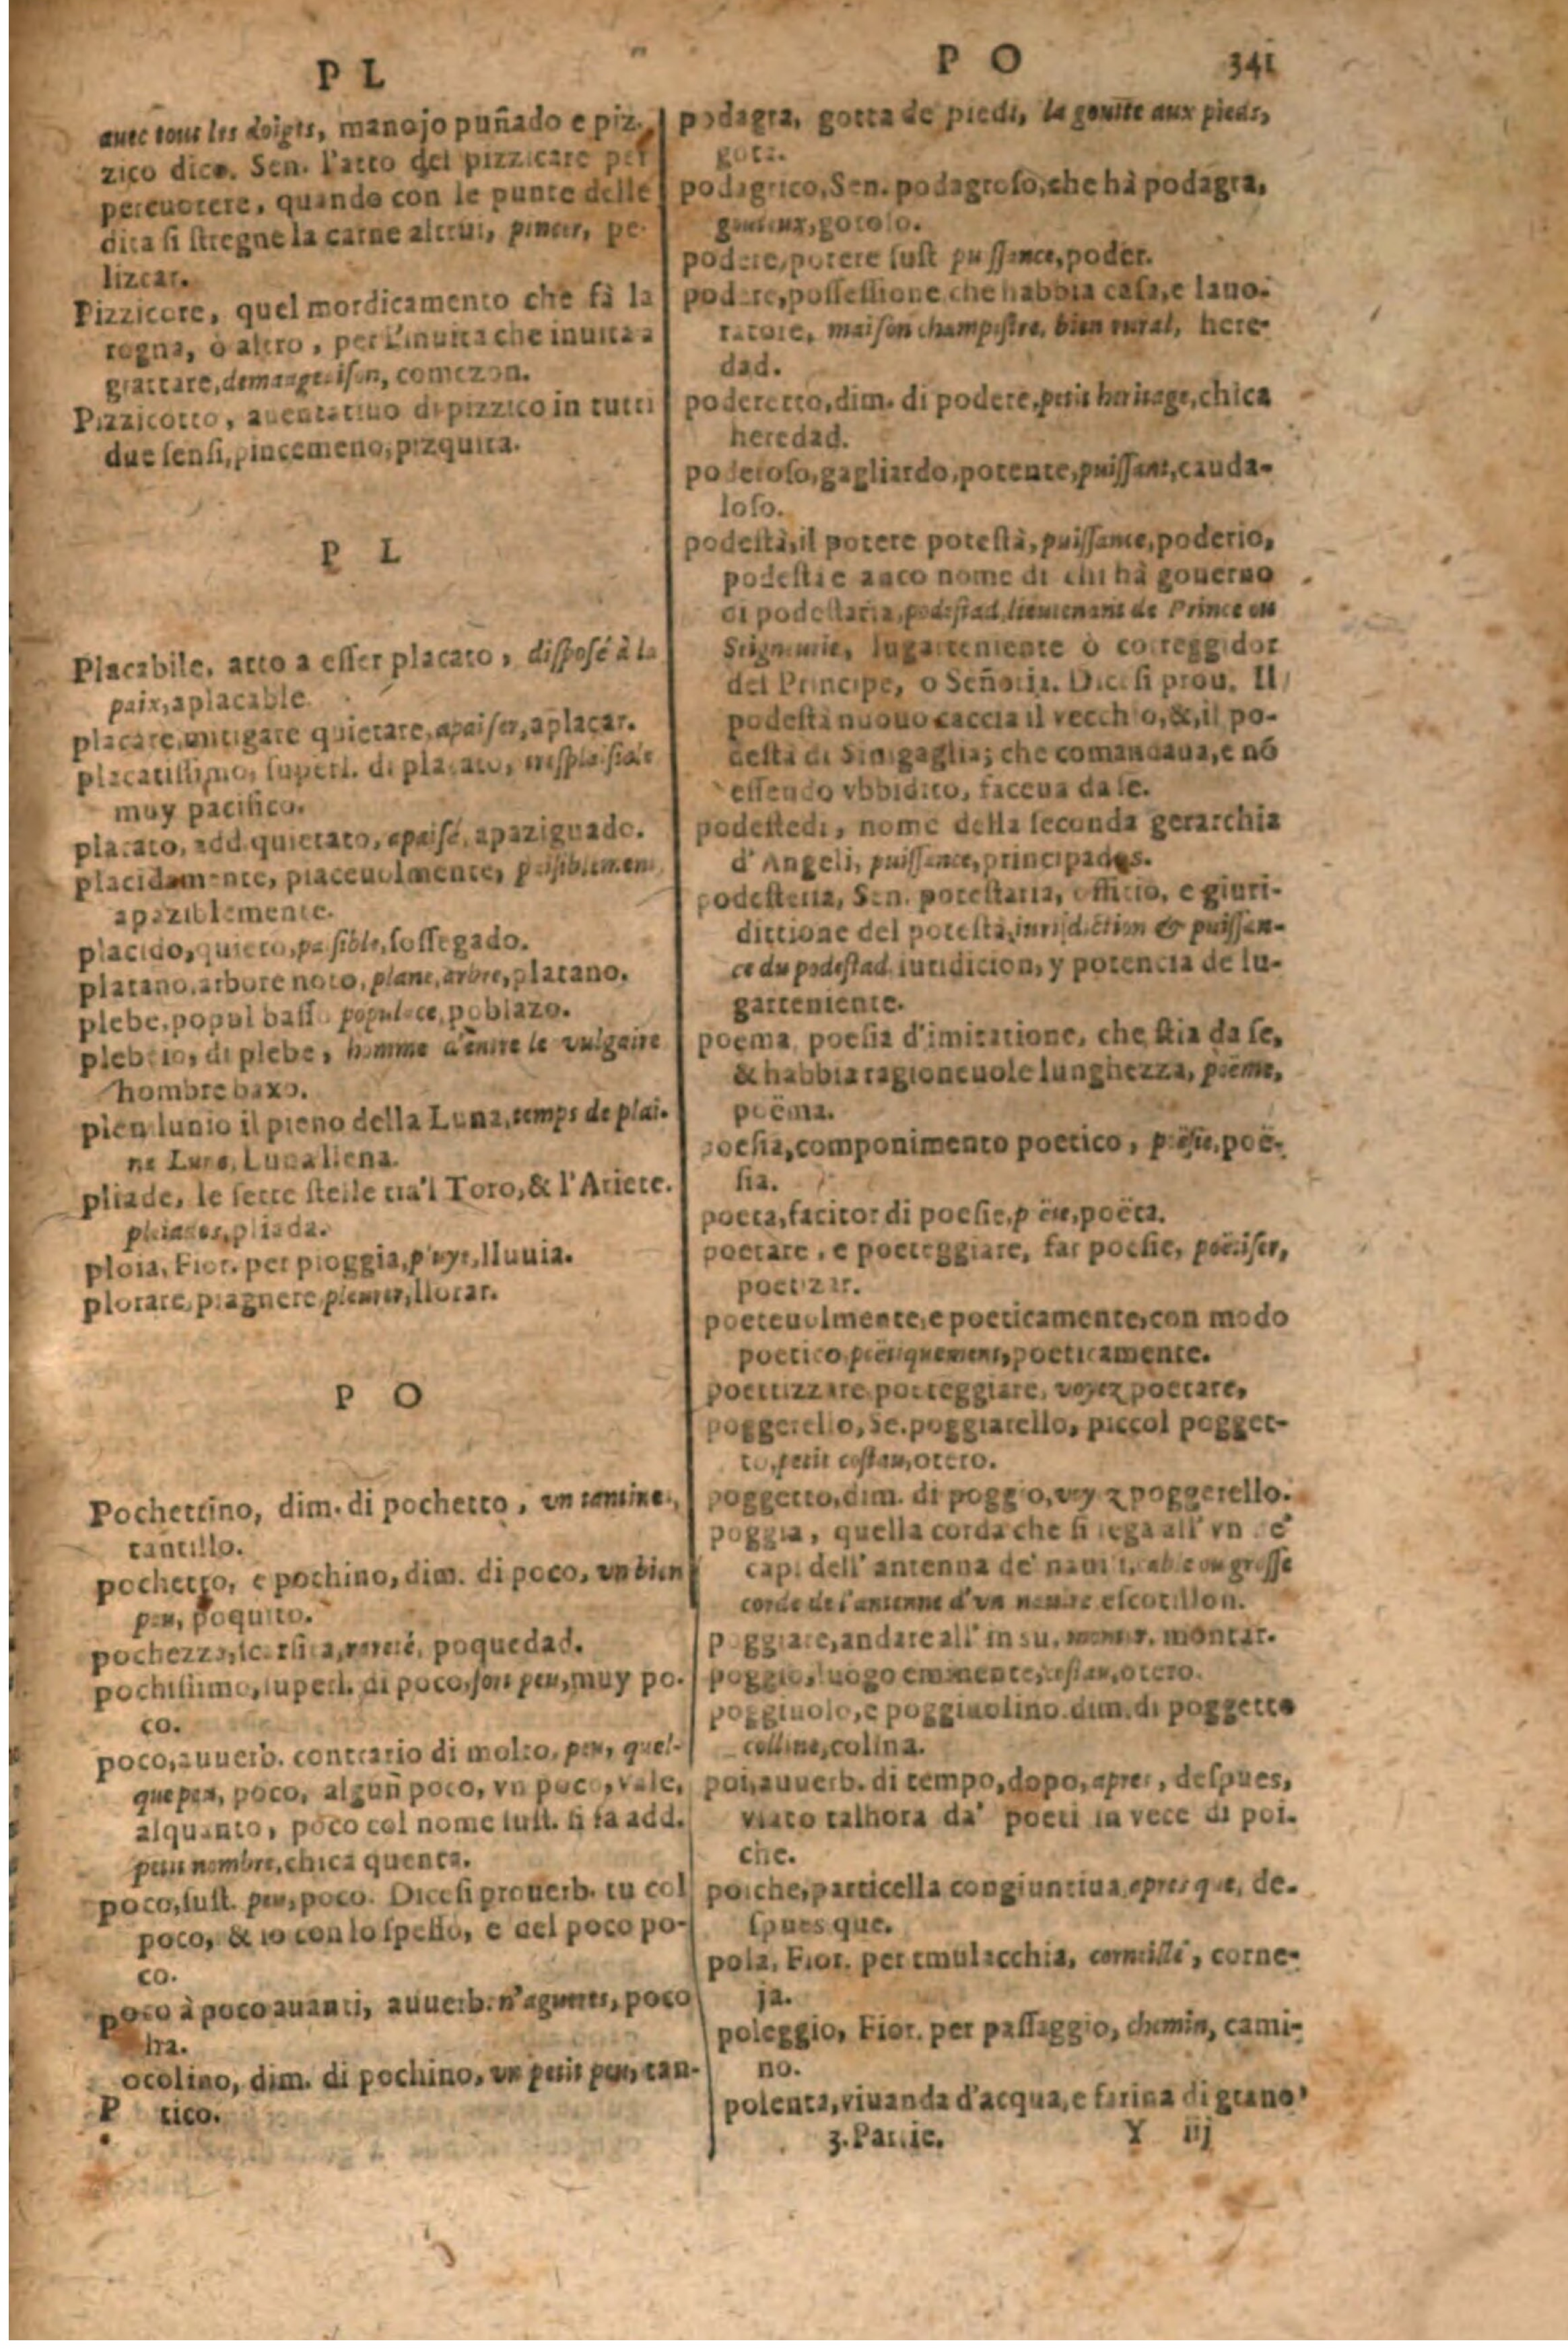 P L
P O
341
auec tous les doigts, manojo puñado e piz-
zico dice. Sen. l'atto del pizzicare per
percuotere, quando con le punte delle
dita si stregne la carne altrui, pincer, pe-
lizcar.
Pizzicore, quel mordicamento che fà la
rogna, ò altro, per l'inuita che inuita a
grattare, demangeison, comezon.
Pizzicotto, aumentatiuo di pizzico in tutti
due sensi, pincemeno, pizquita.
P L
Placabile, atto a esser placato, disposé à la
paix, aplacable.
placare, mitigare quietare, apaiser, aplacar.
placatissimo, superl. di placato,
muy pacifico.
placato, add. quietato, apaisé, apaziguado.
placidamente, piaceuolmente, paisiblement,
apaziblemente.
placido, quieto, paisible, sossegado.
platano, arbore noto, plane, arbre, platano.
plebe, popul basso populace, poblazo.
plebeio, di plebe, homme d'entre le vulgaire
hombre baxo.
plenilunio il pieno della Luna, temps de plai-
ne Lune, Luna llena.
pliade, le sette stelle tra'l Toro, & l'Ariete.
pleiades, pliada.
ploia, Fior. per pioggia, pluye, lluuia.
plorare, piagnere pleurer, llorar.
P O
Pochettino, dim. di pochetto, vn tantinet,
tantillo.
pochetto, e pochino, dim. di poco, vn bien
peu, poquito.
pochezza, scarsita, rareté, poquedad.
pochissimo, superl. di poco, fort peu, muy po-
co.
poco, auuerb. contrario di molto, peu, quel-
que peu, poco, algun poco, vn poco, vale,
alquanto, poco col nome sust. si fa add.
petit nombre, chica quenta.
poco, sust. peu, poco. Dicesi prouerb. tu col
poco, & io con lo spesso, e del poco po-
co.
poco à poco auanti, auuerb. n'agueres, poco
ha.
ocolino, dim. di pochino, vn petit peu, tan-
P tico.
podagra, gotta de piedi, la goutte aux pieds,
gota.
podagrico, Sen. podagroso, che hà podagra,
gouteux, gotoso.
podere, potere sust puissance, poder.
podere, possessione che habbia casa, e lauo-
ratore, maison champestre, bien rural, here-
dad.
poderetto, dim. di podere, petit heritage, chica
heredad.
poderoso, gagliardo, potente, puissant, cauda-
loso.
podestà, il potere potestà, puissance, poderio,
podestà e anco nome di chi hà gouerno
di podestaria, podestad, lieutenant de Prince ou
Seigneurie, lugarteniente ò correggidor
del Principe, o Señoria. Dicesi prou. Il
podestà nuouo caccia il vecchio, &, il po-
destà di Sinigaglia; che comandaua, e nõ
essendo vbbidito, faceua da se.
podestedi, nome della seconda gerarchia
d'Angeli, puissance, principados.
podesteria, Sen. potestaria, officio, e giuri-
dittione del potestà, iurisdiction & puissan-
ce du podestad, iuridicion, y potencia de lu-
garteniente.
poema, poesia d'imitatione, che stia da se,
& habbia ragioneuole lunghezza, poëme,
poëma.
poesia, componimento poetico, poësie, poë-
sia.
poeta, facitor di poesie, poëte, poëta.
poetare, e poeteggiare, far poesie, poëtiser,
poetizar.
poeteuolmente, e poeticamente, con modo
poetico, poëtiquement, poeticamente.
poetizzare poeteggiare, voyez poetare,
poggerello, Se. poggiarello, piccol pogget-
to, petit costau, otero.
poggetto, dim. di poggio, voyez poggerello.
poggia, quella corda che si lega all'vn de
capi dell'antenna de' nauili, able ou grosse
corde de l'antenne d'vn nauire escotillon.
poggiare, andare all'in su, monter, montar.
poggio, luogo eminente, costau, otero.
poggiuolo, e poggiuolino dim. di poggetto
colline, colina.
poi, auuerb. di tempo, dopo, apres, despues,
vsato talhora da' poeti in vece di poi-
che.
poiche, particella congiuntiua, apres que, de-
spues que.
pola, Fior. per cmulacchia, corneille, corne-
ja.
poleggio, Fior. per passaggio, chemin, cami-
no.
polenta, viuanda d'acqua, e farina di grano
3. Partie.
Y iij